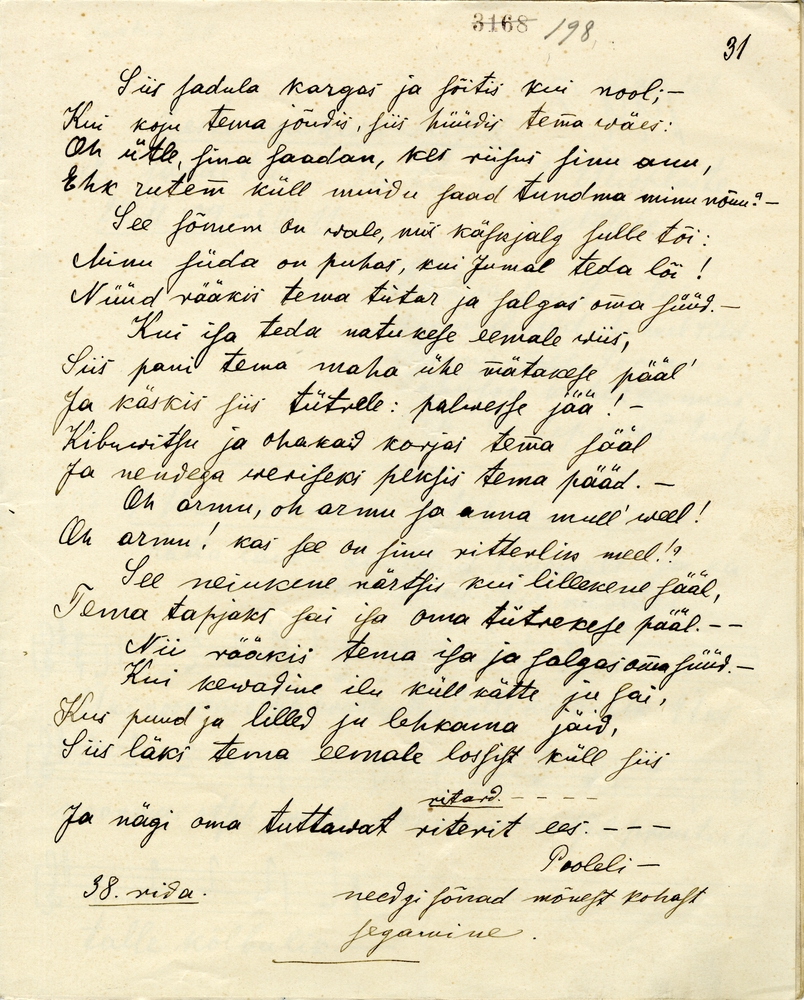 3168 198
31
Siis sadula kargas ja sõitis kui nool;—
Kui koju tema jõudis, siis hüüdis tem̄a wäes:
Oh ütle, sina saadan, kes riisus sinu au,
Ehk rutem̄ küll muidu saad tundma minu nõuu?—
See sõnum on wale, mis käskjalg sulle tõi:
Minu süda on puhas, kui Jumal teda lõi!
Nüüd rääkis tema tütar ja salgas om̄a süüd.—
Kui isa teda natukese eemale wiis,
Siis pani tema maha ühe mätakese pääl'
Ja käskis siis tütrele: palwesse jää!—
Kibuwitsu ja ohakaid korjas tem̄a sääl
Ja nendega weriseks peksis tema pääd.—
Oh armu, oh armu sa anna mull' weel!
Oh armu! kas see on sinu ritterlik meel!?
See neiukene närtsis kui lillekene sääl,
Tema tapjaks sai isa oma tütrekese pääl.--
Nii rääkis tema isa ja salgas om̄a süüd.—
Kui kewadine ilu küll kätte ju sai,
Kus puud ja lilled ju lehkama jäid,
Siis läks tema eemale lossist küll siis
ritard.----
Ja nägi oma tuttawat riterit ees.---
Pooleli—
38. rida.
needgi sõnad mõnest kohast
segamine.